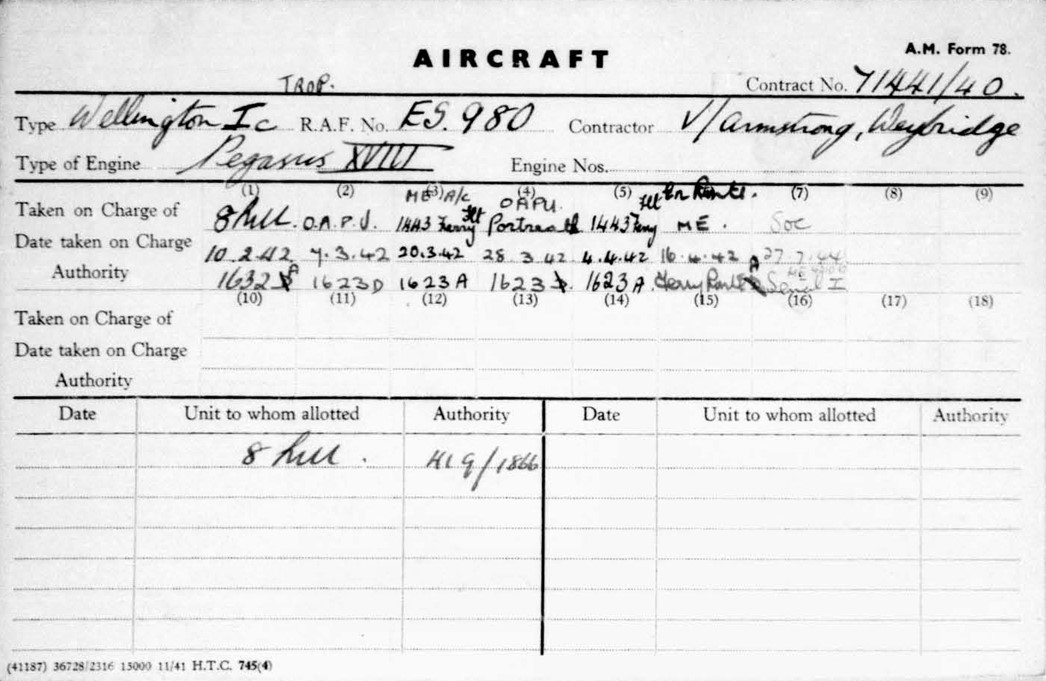 AIRCRAFT
A.M. Form 78.
TROP.
Contract No. 71441/40.
Type Wellington Ic R.A.F. No. ES.980 Contractor V/Armstrong, Weybridge
Type of Engine Pegasus XVIII Engine Nos.
(1) (2) (3) (4) (5) (7) (8) (9)
ME A/c OAPU. Flt En Route.
Taken on Charge of 8 O.A.P.U. 1443 Ferry Flt Portreath 1443 Ferry ME. SOC
Date taken on Charge 10.2.42 7.3.42 20.3.42 28.3.42 4.4.42 16.4.42 27.7.44
Authority 1632 1623D 1623A 1623 1623A. Serial I
(10) (11) (12) (13) (14) (15) (16) (17) (18)
Taken on Charge of
Date taken on Charge
Authority
Date Unit to whom allotted Authority Date Unit to whom allotted Authority
8 419/1866
(41187) 36728/2316 15000 11/41 H.T.C. 745(4)